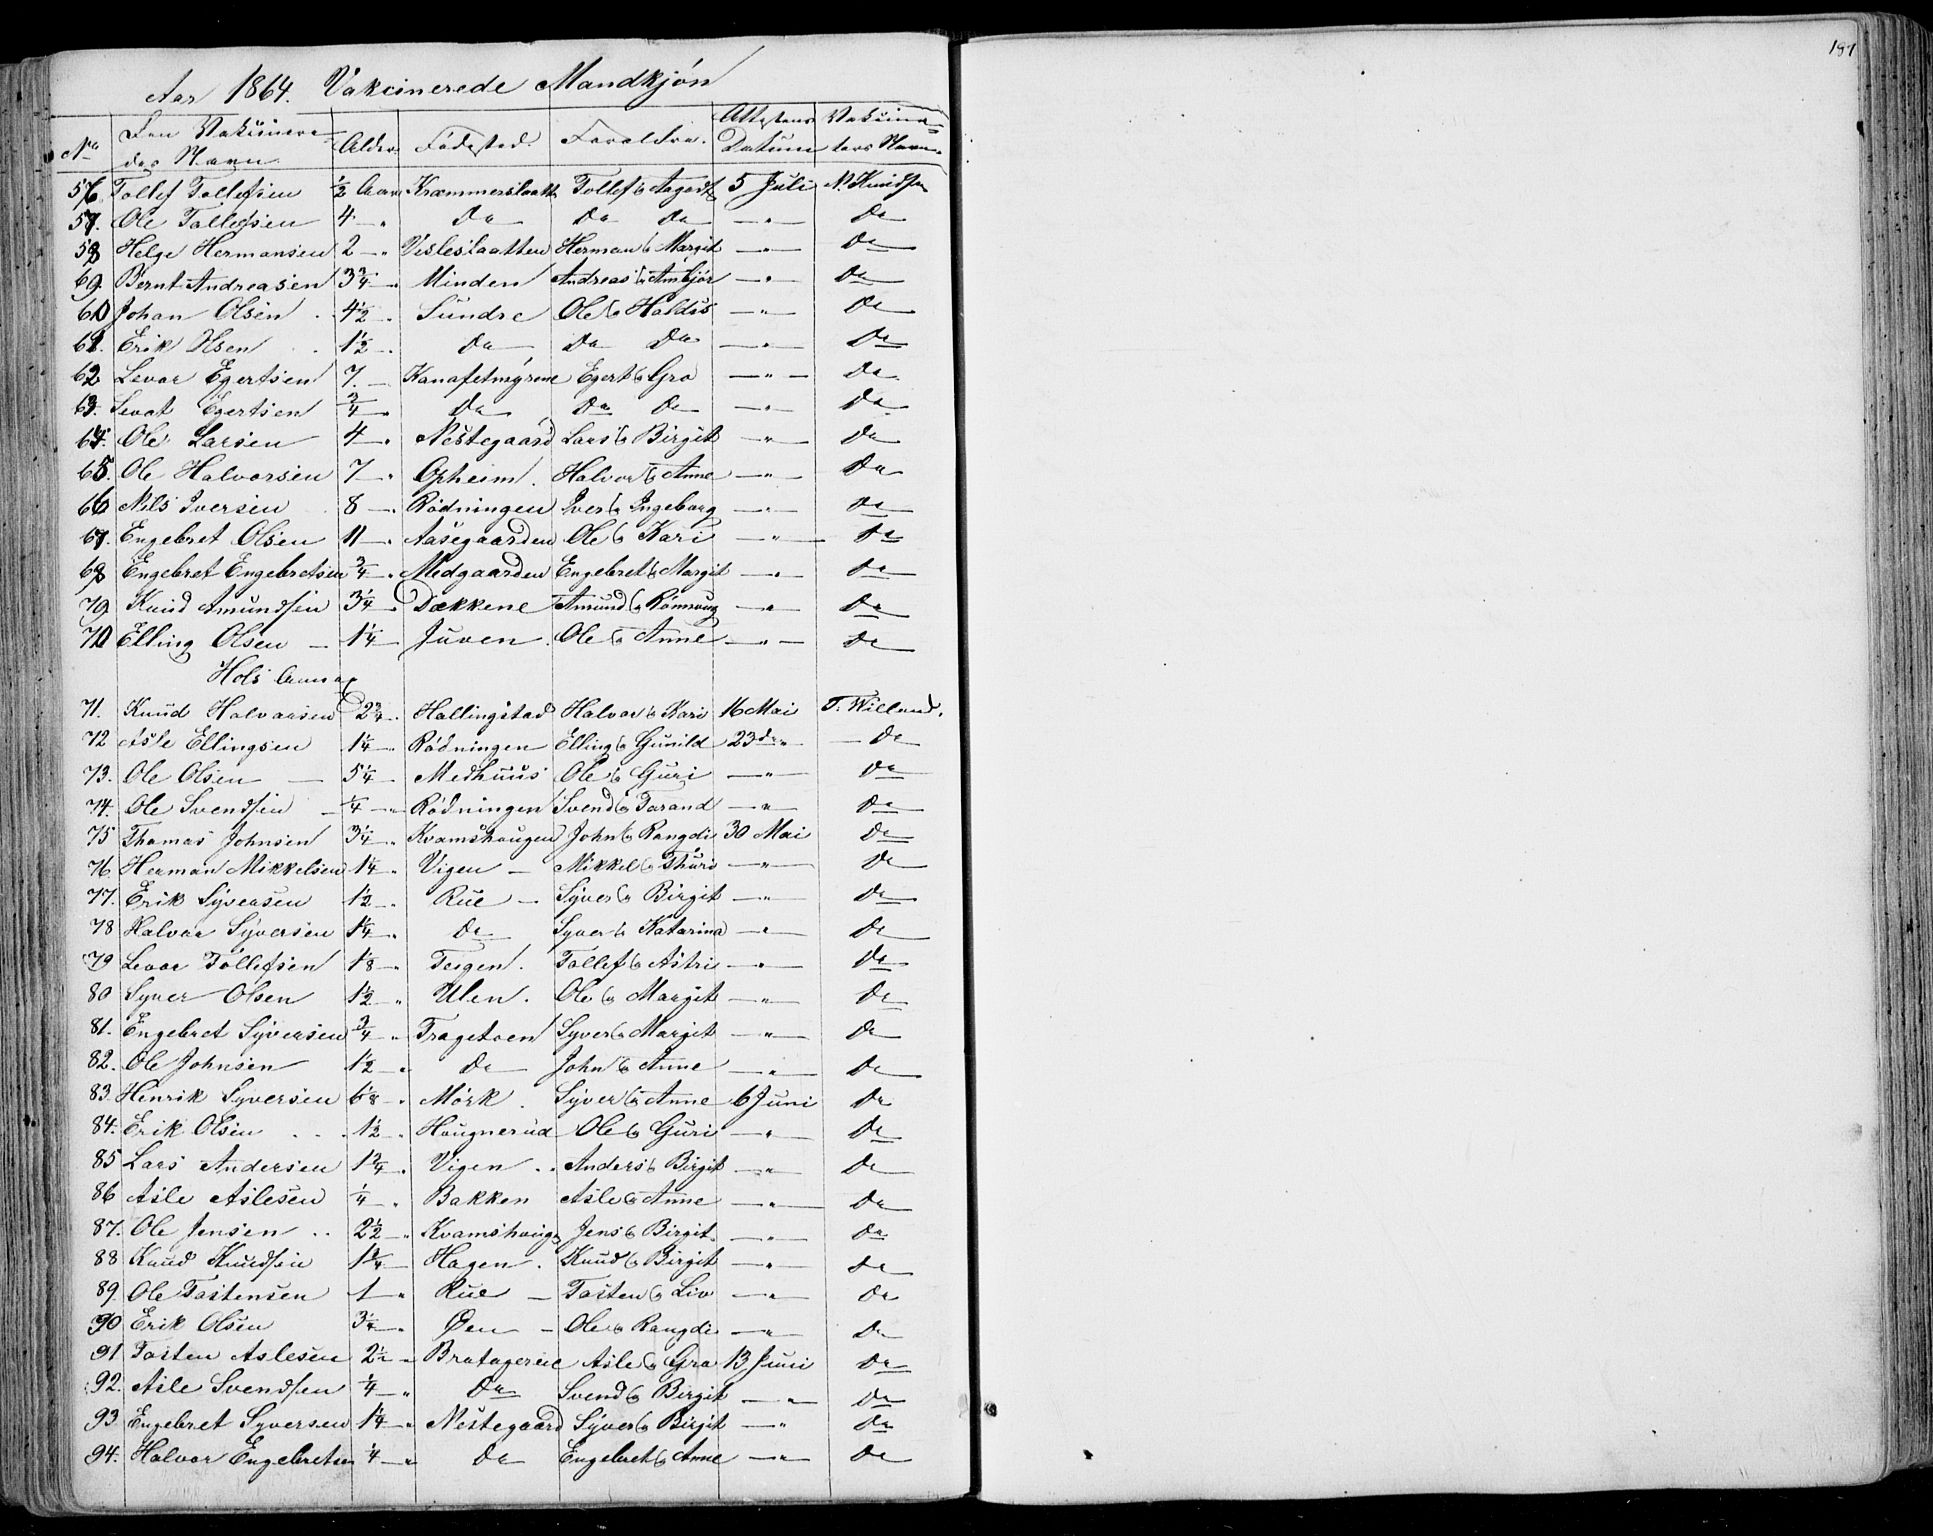 187
Aar 1864. Vakcinerede Mandkjøn
No Den Vakcinere- Alder. Fødested. Forældre. Attestens Vakcina-
des Navn. Datum tørs Navn.
56 Tollef Tollefsen ½ Aar Kræmmerslaatt Tollef & Aagodt 5 Juli N. Knudsen
57. Ole Tollefsen 4 — " Do Do Do — " — Do
58 Helge Hermansen 2 — " Vesleslaatten Herman & Margit — " — Do
69. Bernt Andreasen 3¾ — " Minden Andreas & Ambjør — " — Do
60 Johan Olsen 4½ — " Sundre Ole & Haldis — " — Do
61. Erik Olsen 1½ — " Do Do Do — " — Do
62 Levor Egertsen 7. — Kanafetmyrene Egert & Gro — " — Do
63. Sevat Egertsen ¾ — " Do Do Do — " — Do
64. Ole Larsen 4 — " Nestegaard Lars & Birgit — " — Do
65. Ole Halvorsen 7 — " Opheim. Halvor & Anne — " — Do
66 Nils Iversen 8 — " Rødningen Iver & Ingeborg — " — Do
67. Engebret Olsen 11 — " Aasegaarden Ole & Kari — " — Do
68 Engebret Engebretsen ¾ — " Medgaarden Engebret & Margit — " — Do
79 Knud Amundsen 3¼ — " Dækkene Amund & Rønnoug — " — Do
70 Elling Olsen — 1¼ — Juven. Ole & Anne — " — Do
Hols Annex
71. Knud Halvorsen 2¾ — Hallingstad Halvor & Kari 16 Mai T. Villand.
72 Asle Ellingsen 1¼ — " Rødningen Elling & Gunild 23 do " — Do
73. Ole Olsen — 5¼ — Medhuus Ole & Guri — " — Do
74. Ole Svendsen — ¼ — " Rødningen Svend & Torand — " — Do
75 Thomas Johnsen 3¼ — " Kvamshaugen John & Rangdi 30 Mai Do
76 Herman Mikkelsen 1¼ — " Vigen — Mikkel & Thuri — " — Do
77. Erik Syversen 1½ — " Rue — Syver & Birgit — " — Do
78 Halvor Syversen 1¼ — " Do Syver & Katarina — " — Do
79 Levor Tollefsen 1⅛ — " Teigen. Tollef & Astri — " — Do
80 Syver Olsen 1½ — " Ulen. Ole & Margit — " — Do
81. Engebret Syversen ¾ — " Trageton Syver & Margit — " — Do
82. Ole Johnsen 1½ — " Do John & Anne — " — Do
83. Henrik Syversen 6⅛ — " Mørk. Syver & Anne 6 Juni Do
84. Erik Olsen . . . 1½ — " Haugnerud Ole & Guri — " — Do
85 Lars Andersen 1¾ — " Vigen .. Anders & Birgit — " — Do
86 Asle Aslesen ¼ — " Bakken Asle & Anne — " — Do
87. Ole Jensen .. 2½ — " Kvamshaug Jens & Birgit. — " — Do
88 Knud Knudsen 1¼ — Hagen. Knud & Birgit — " — Do
89. Ole Tostensen 1 — " Rue — Tosten & Liv — " — Do
90 Erik Olsen 3¼ — " Øen — Ole & Rangdi — " — Do
91 Tosten Aslesen 2½ — " Bratagereie Asle & Gro 13 Juni Do
92. Asle Svendsen ¼ — " Do Svend & Birgit — " — Do
93 Engebret Syversen 1¼ — " Nestegaard Syver & Birgit — " Do
94. Halvor Engebretsen ¼ — " Do Engebret & Anne — " — Do